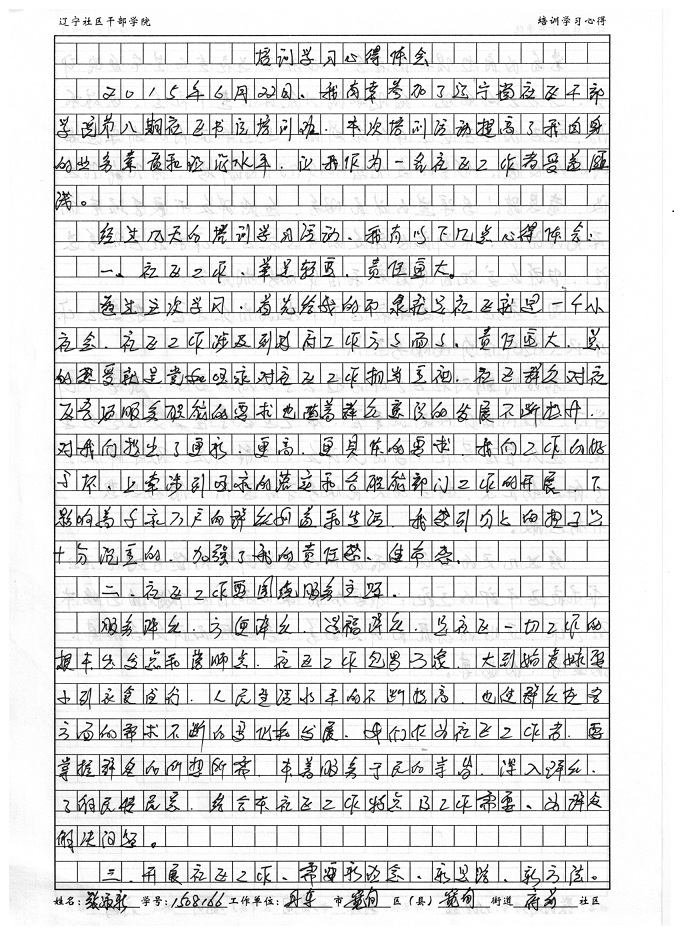 辽宁社区干部学院 培训学习心得
培训学习心得体会
2015年6月22日、我有幸参加了辽宁省社区干部
学院第八期社区书记培训班.本次培训活动提高了我自身
的业务素质和理论水平.让我作为一名社区工作者受益匪
浅。
经过几天的培训学习活动、我有以下几点心得体会:
一、社区工作、举足轻重、责任重大。
通过这次学习.首先给我的印象就是社区就是一个小
社会.社区工作涉及到政府工作方方面面.责任重大.
对我们提出了更新、更高、更具体的要求.我们工作的好
与坏.上牵涉到政府的和各职能部门工作的开展、下
影响着千家万户的群众和生活.我感到身上的担子
十分沉重的.加强了我的责任感、使命感.
二、社区工作要围绕服务主题.
服务群众.方便群众.造福群众.是社区一切工作的
根本出发点和落脚点.社区工作包罗万象.大到
小到衣食住行.人民生活水平的不断提高.也使群众在各
方面的需求不断的和发展.我们作为社区工作者.要
掌握群众的所想所需.本着服务于民的宗旨.深入群众.
了解民情民意.结合本社区工作特点及工作需要、为群众
解决问题。
三.开展社区工作、需要新理念、新思路、新方法。
姓名: 学号:1508166工作单位:丹东 市 宽甸 区(县) 宽甸 街道 社区